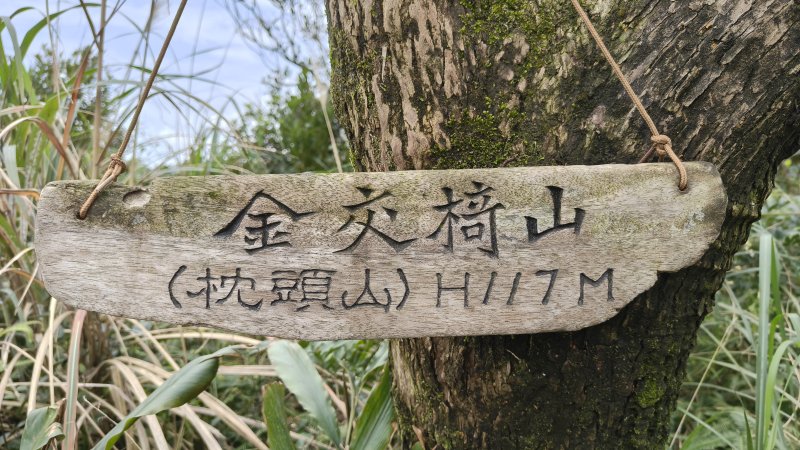 金交椅山
(枕頭山)H117M